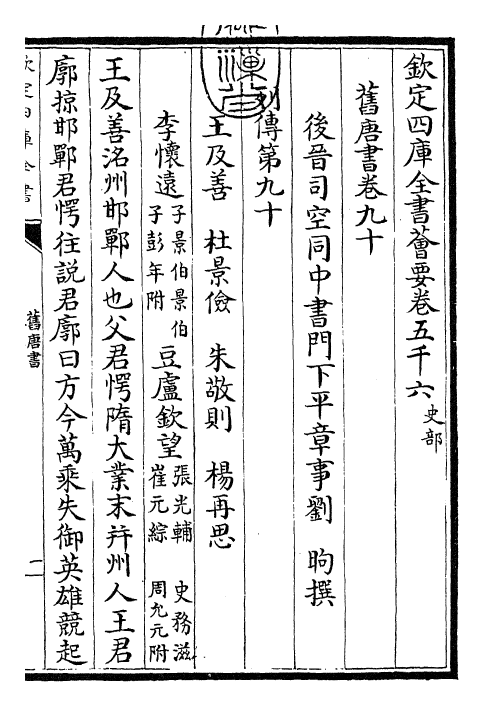 欽定四庫全書薈要卷五千六 史部
舊唐書卷九十
後晉司空同中書門下平章事劉 昫撰
列傳第九十
王及善 杜景儉 朱敬則 楊再思
李懷遠 子景伯 景伯子彭年附 豆盧欽望 張光輔 史務滋 崔元綜 周允元附
王及善洺州邯鄲人也父君愕隋大業末并州人王君
廓掠邯鄲君愕往說君廓曰方今萬乘失御英雄競起
欽定四庫全書
舊唐書
二